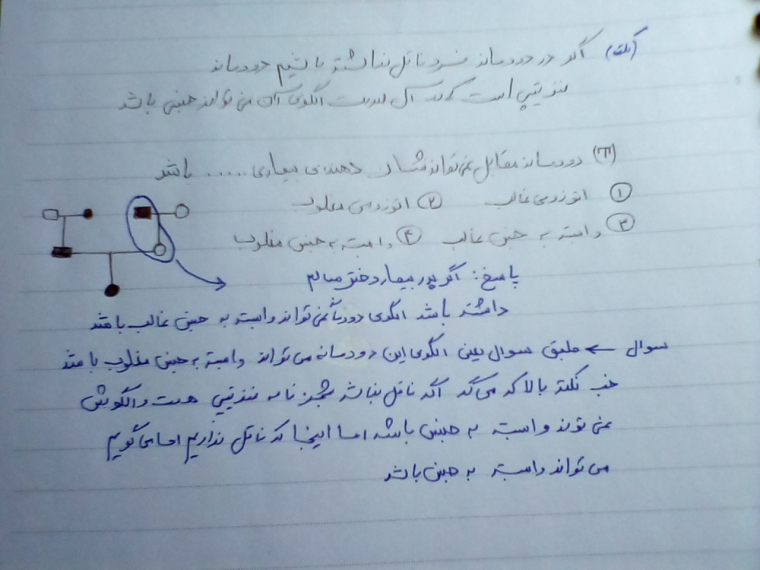 نکته) اگر در دودمانه فرد ناقل نداشته باشیم دودمانه
است که در آن الگوی آن نمی تواند جنسی باشد
(۳۲) دودمانه مقابل نمی تواند نشان دهنده ی بیماری ..... باشد
① اتوزومی غالب ② اتوزومی مغلوب
③ وابسته به جنسی غالب ④ وابسته به جنسی مغلوب
پاسخ: اگر پدر بیمار دختر سالم
داشته باشد الگوی نمی تواند وابسته به جنسی غالب باشد
سوال ← طبق سوال یعنی الگوی این دودمانه می تواند وابسته به جنسی مغلوب باشد
خب نکته بالا که می گه اگه ناقل نباشد هست و الگوش
نمی تونه وابسته به جنسی باشه اما اینجا که ناقل نداریم اما می گویم
می تواند وابسته به جنسی باشد